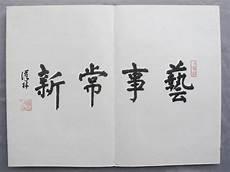 藝事常新